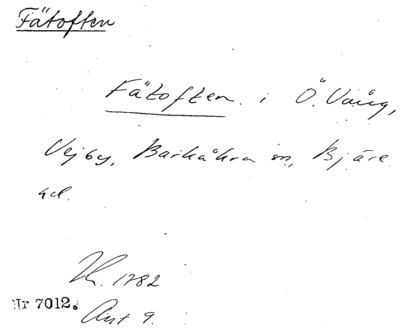 Fätoften
Fätoften i Ö. Vång,
Vejby, Barkåkra sn, Bjäre
hd.
1782
Nr 7012. Ant 9.